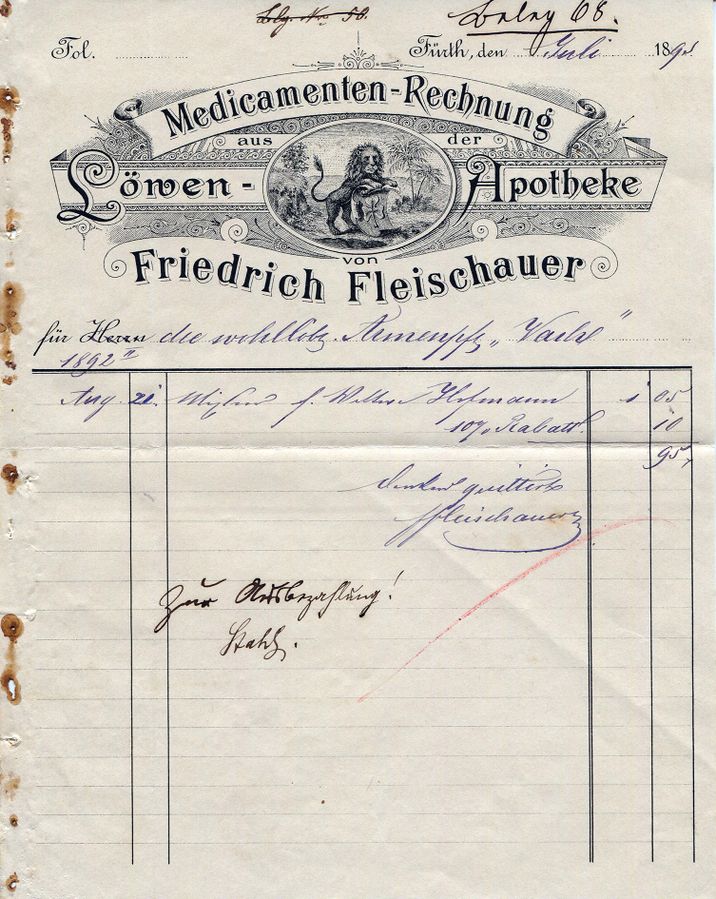 Blg. No. 58.
Beleg 68.
Fol.
Fürth, den Juli 189
Medicamenten-Rechnung
aus der
Löwen-Apotheke
von
Friedrich Fleischauer
für Herrn die wohllöbl. Armenpfl. „Vach“
1892
Aug. 21. f. Hofmann 1 05
10% Rabatt. 10
95
dankend quittirt
Fleischauer
Zur Ausbezahlung!